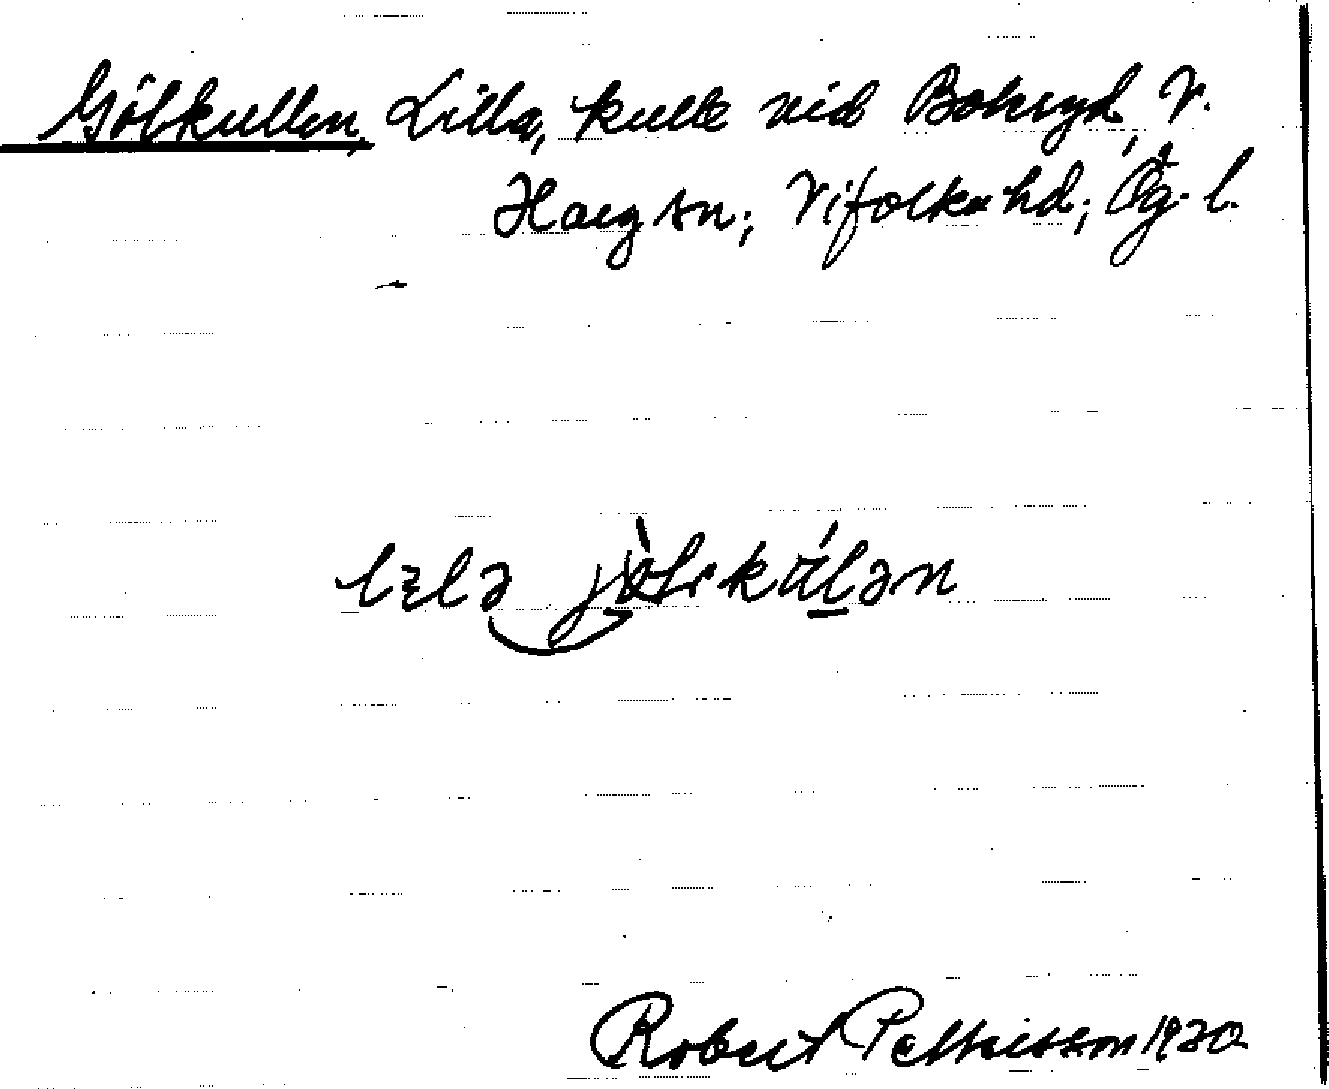 Gölkullen, Lilla, kulle vid Bokryd, V.
Harg sn; Vifolka hd; Ög. l.
lɛlə jö̀lskúlən
Robert Pettersson 1930